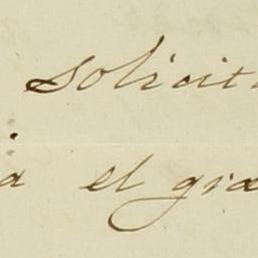 solicit
a el gra